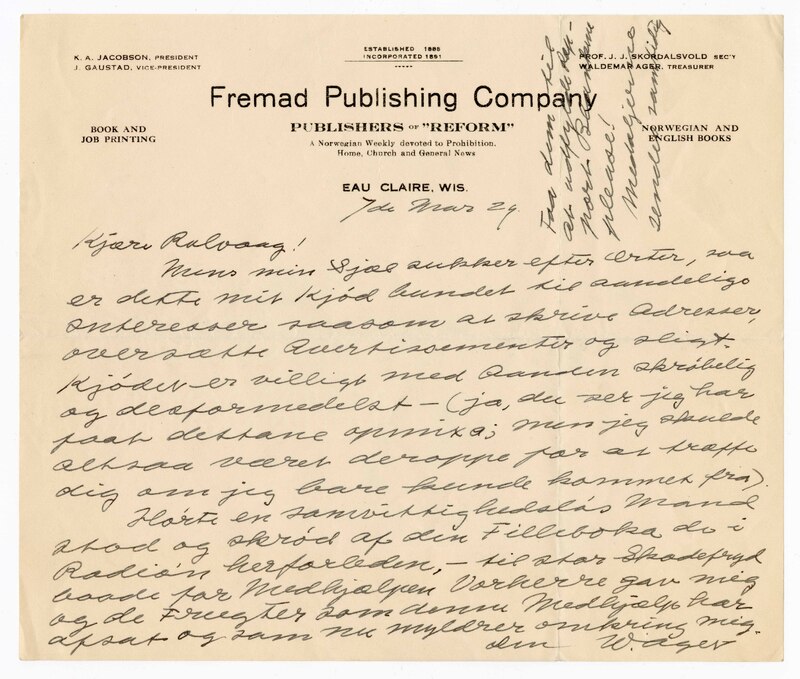 K. A. JACOBSON, PRESIDENT
J. GAUSTAD, VICE-PRESIDENT
ESTABLISHED 1886
INCORPORATED 1891
PROF. J. J. SKORDALSVOLD SEC'Y
WALDEMAR AGER, TREASURER
Fremad Publishing Company
BOOK AND
JOB PRINTING
PUBLISHERS OF "REFORM"
A Norwegian Weekly devoted to Prohibition.
Home, Church and General News
NORWEGIAN AND
ENGLISH BOOKS
EAU CLAIRE, WIS.
7de Mar 29.
Kjære Rølvaag!
Mens min Sjæl sukker efter Erter, saa
er dette mit Kjød bundet til aandelige
Interesser saasom at skrive Adresser,
oversætte Avertissementer og sligt.
Kjødet er villigt med Aanden skrøbelig
og desformedelst — (ja, du ser jeg har
faat dettane opmixa; men jeg skulde
altsaa været deroppe for at træffe
dig om jeg bare kunde kommet fra).
Hørte en samvittighedsløs Mand
stod og skrød af den Filleboka di i
Radioen herforleden, — til stor Skadefryd
baade for Medhjælpen Vorherre gav mig
og de Frugter som denne Medhjælp har
afsat og som nu myldrer omkring mig.
din W. Ager
Faa dem til
at udfylde
please!
Medaljerne
sendes samtidig